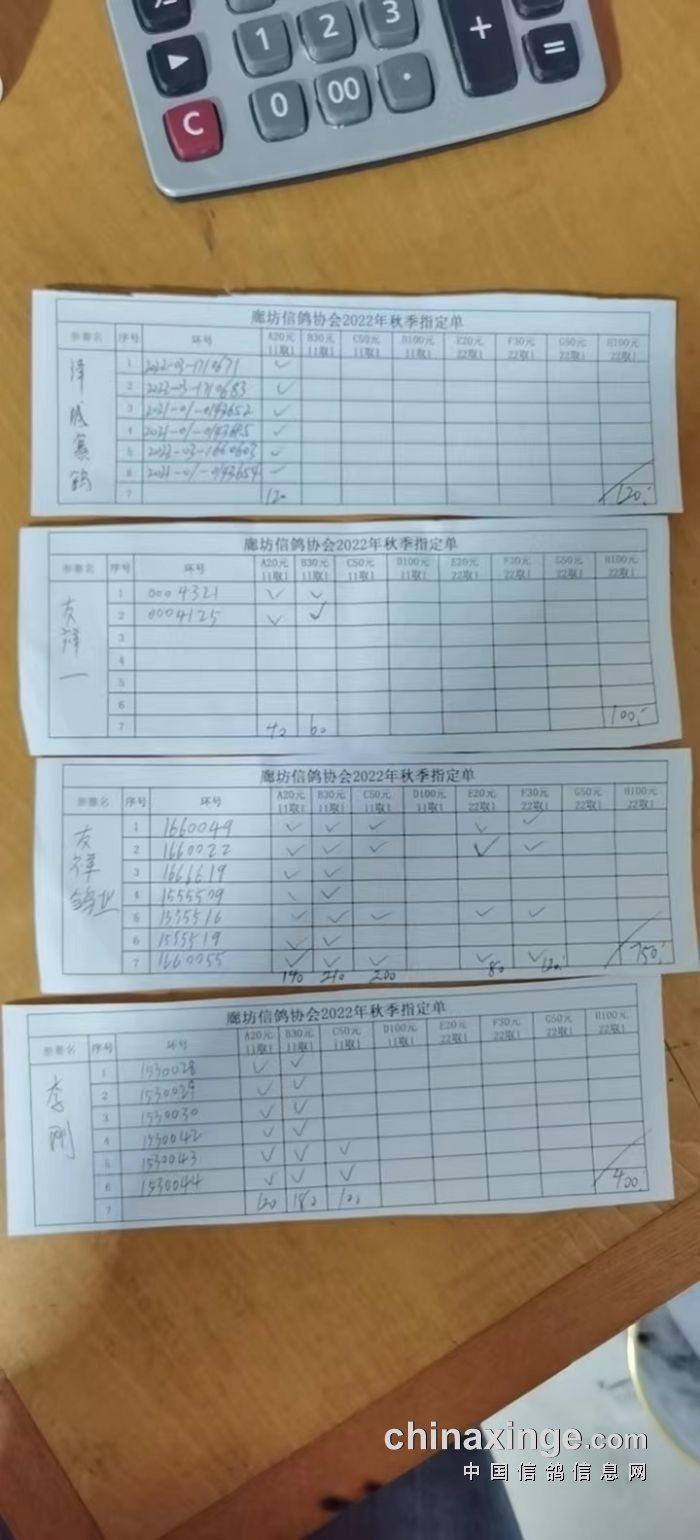 1 2 3 +
0 00 · =
C
廊坊信鸽协会2022年秋季指定单
参赛名 序号 环号 A20元 11取1 B30元 11取1 C50元 11取1 D100元 11取1 E20元 22取1 F30元 22取1 G50元 22取1 H100元 22取1
1 2022-03-1710671 ✓
2 2022-03-1710683 ✓
3 2021-01-0143652 ✓
4 ✓
5 2022-03-1660603 ✓
6 2021-01-0143654 ✓
7 120 120
廊坊信鸽协会2022年秋季指定单
参赛名 序号 环号 A20元 11取1 B30元 11取1 C50元 11取1 D100元 11取1 E20元 22取1 F30元 22取1 G50元 22取1 H100元 22取1
友祥一
1 0004321 ✓ ✓
2 0004125 ✓ ✓
3
4
5
6
7 40 60 100
廊坊信鸽协会2022年秋季指定单
参赛名 序号 环号 A20元 11取1 B30元 11取1 C50元 11取1 D100元 11取1 E20元 22取1 F30元 22取1 G50元 22取1 H100元 22取1
友祥鸽业
1 1660049 ✓ ✓ ✓ ✓ ✓
2 1660022 ✓ ✓ ✓ ✓ ✓
3 1666619 ✓ ✓
4 1555509 ✓ ✓
5 1555516 ✓ ✓ ✓ ✓ ✓
6 1555519 ✓ ✓
7 1660055 ✓ ✓ ✓ ✓ ✓ 750
140 210 200 80 120
廊坊信鸽协会2022年秋季指定单
参赛名 序号 环号 A20元 11取1 B30元 11取1 C50元 11取1 D100元 11取1 E20元 22取1 F30元 22取1 G50元 22取1 H100元 22取1
李刚
1 1530028 ✓ ✓
2 1530029 ✓ ✓
3 1530030 ✓ ✓
4 1530042 ✓ ✓
5 1530043 ✓ ✓ ✓
6 1530044 ✓ ✓ ✓
7 120 180 100 400
chinaxinge.com
中国信鸽信息网